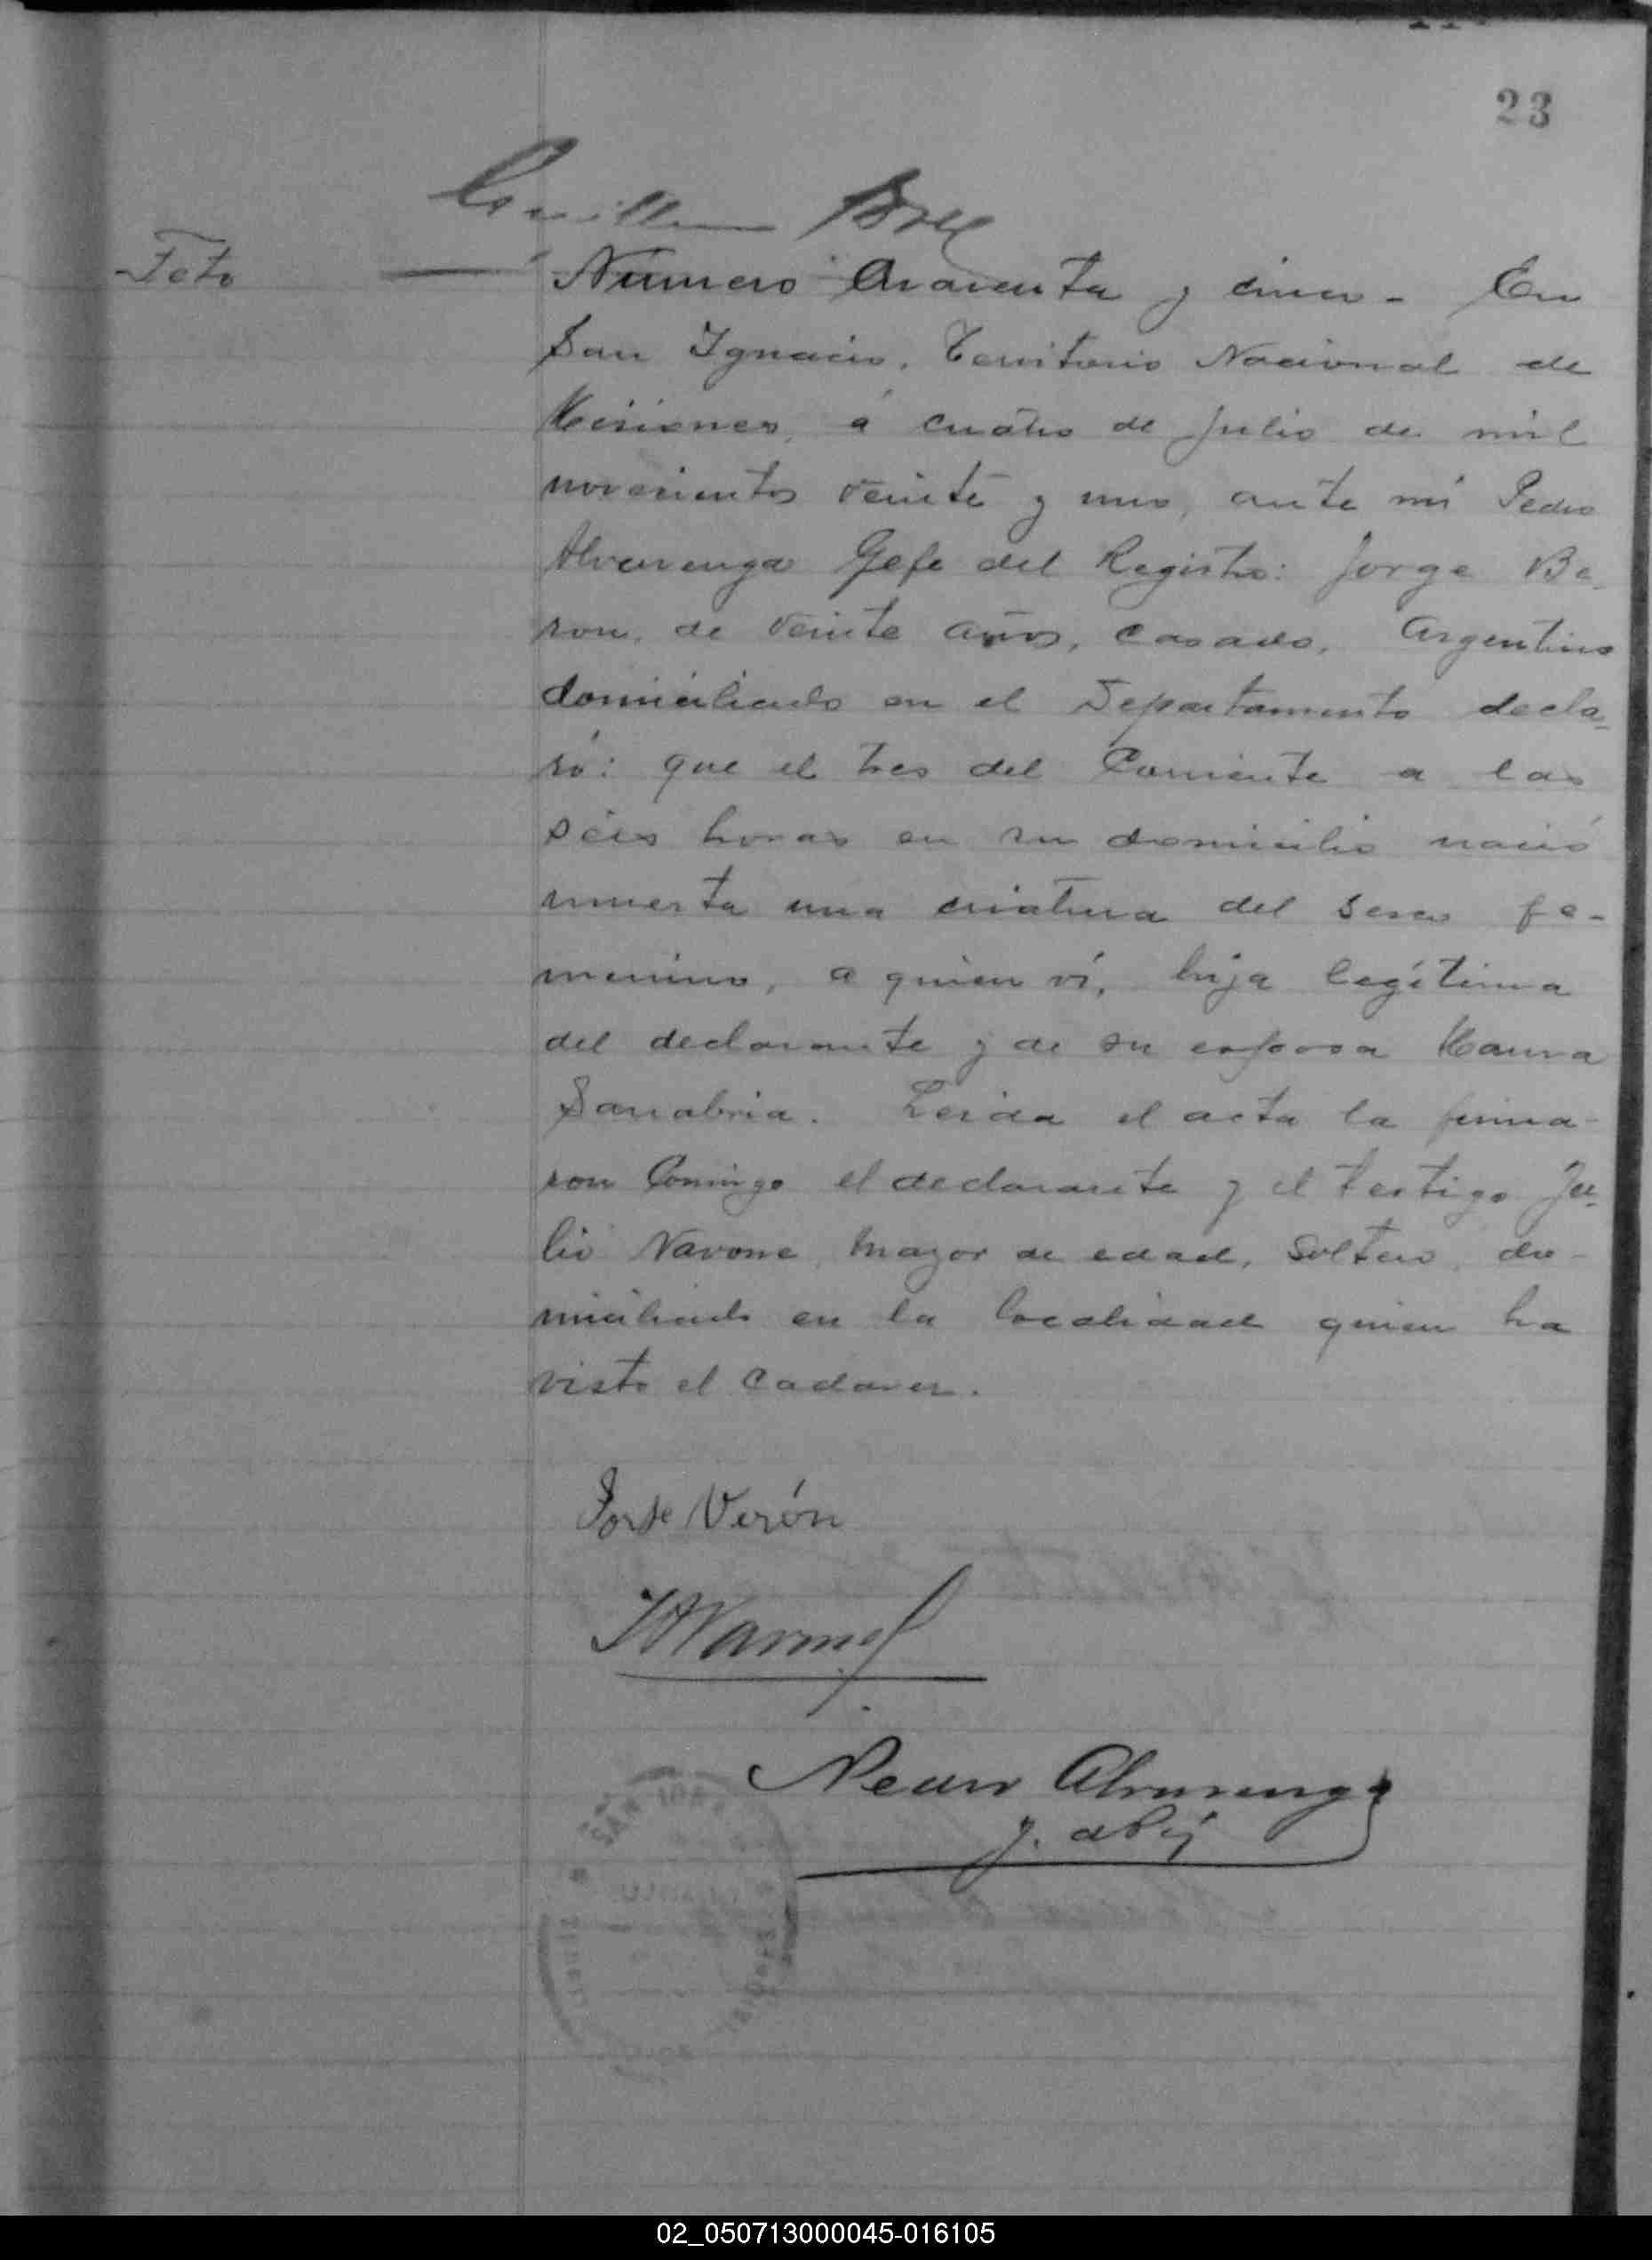 23
Feto
Número Cuarenta y cinco - En
San Ignacio, Territorio Nacional de
Misiones, á cuatro de Julio de mil
novecientos veinte y uno, ante mí Pedro
Alvarenga Gefe del Registro: Jorge Be-
ron, de veinte años, casado, Argentino
domiciliado en el Departamento decla-
ró: que el tres del Corriente a las
seis horas en su domicilio nació
muerta una criatura del sexo fe-
menino, a quien ví, hija legítima
del declarante y de su esposa Maura
Sanabria. Leida el acta la firma-
ron Conmigo el declarante y el testigo Ju-
lio Navone, mayor de edad, soltero, do-
miciliado en la localidad quien ha
visto el cadaver.
Jorje Verón
Pedro Alvarenga
02_050713000045-016105